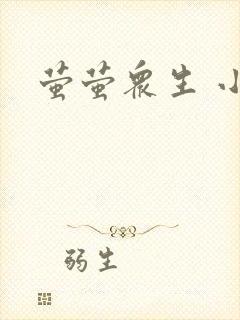 萤萤众生 小
弱生